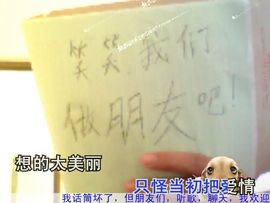 笑笑，我们
做朋友吧！
想的太美丽
只怪当初把爱情
我话筒坏了，但朋友们，听歌，聊天，我欢迎